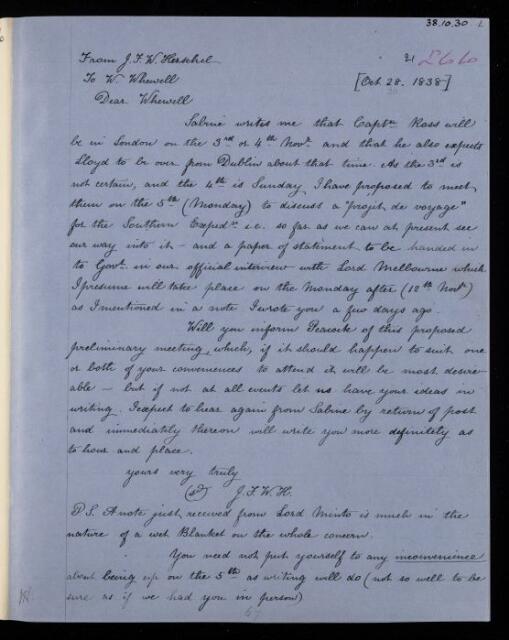 38.10.30 1.
From J. F. W. Herschel 21 L660
To W. Whewell [Oct. 28. 1838]
Dear Whewell
Sabine writes me that Captn. Ross will
be in London on the 3rd or 4th Novr. and that he also expects
Lloyd to be over from Dublin about that time. As the 3rd is
not certain, and the 4th is Sunday, I have proposed to meet
them on the 5th (Monday) to discuss a "projet de voyage"
for the Southern Expedn. i.e. so far as we can at present see
our way into it - and a paper of statement to be handed in
to Govt. in our official interview with Lord Melbourne which
I presume will take place on the Monday after (12th Novr.)
as I mentioned in a note I wrote you a few days ago.
Will you inform Peacock of this proposed
preliminary meeting, which, if it should happen to suit one
or both of your conveniences to attend it will be most desire-
able - but if not at all events let us have your ideas in
writing. I expect to hear again from Sabine by return of post
and immediately thereon will write you more definitely as
to hour and place.
yours very truly
(sd) J. F. W. H.
P.S. A note just received from Lord Minto is much in the
nature of a wet Blanket on the whole concern.
You need not put yourself to any inconvenience
about being up on the 5th as writing will do (not so well to be
sure as if we had you in person)
67